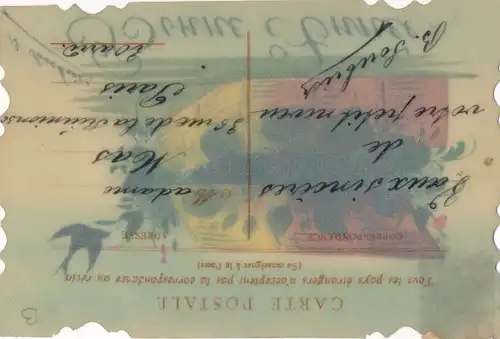 CARTE POSTALE
Tous les pays étrangers n'acceptent pas la correspondance au recto
(Se renseigner à la Poste)
CORRESPONDANCE
ADRESSE
Vœux sincères
de
votre petit neveu
Madame
Mas
35 rue de la
Paris
Bonne Année
B